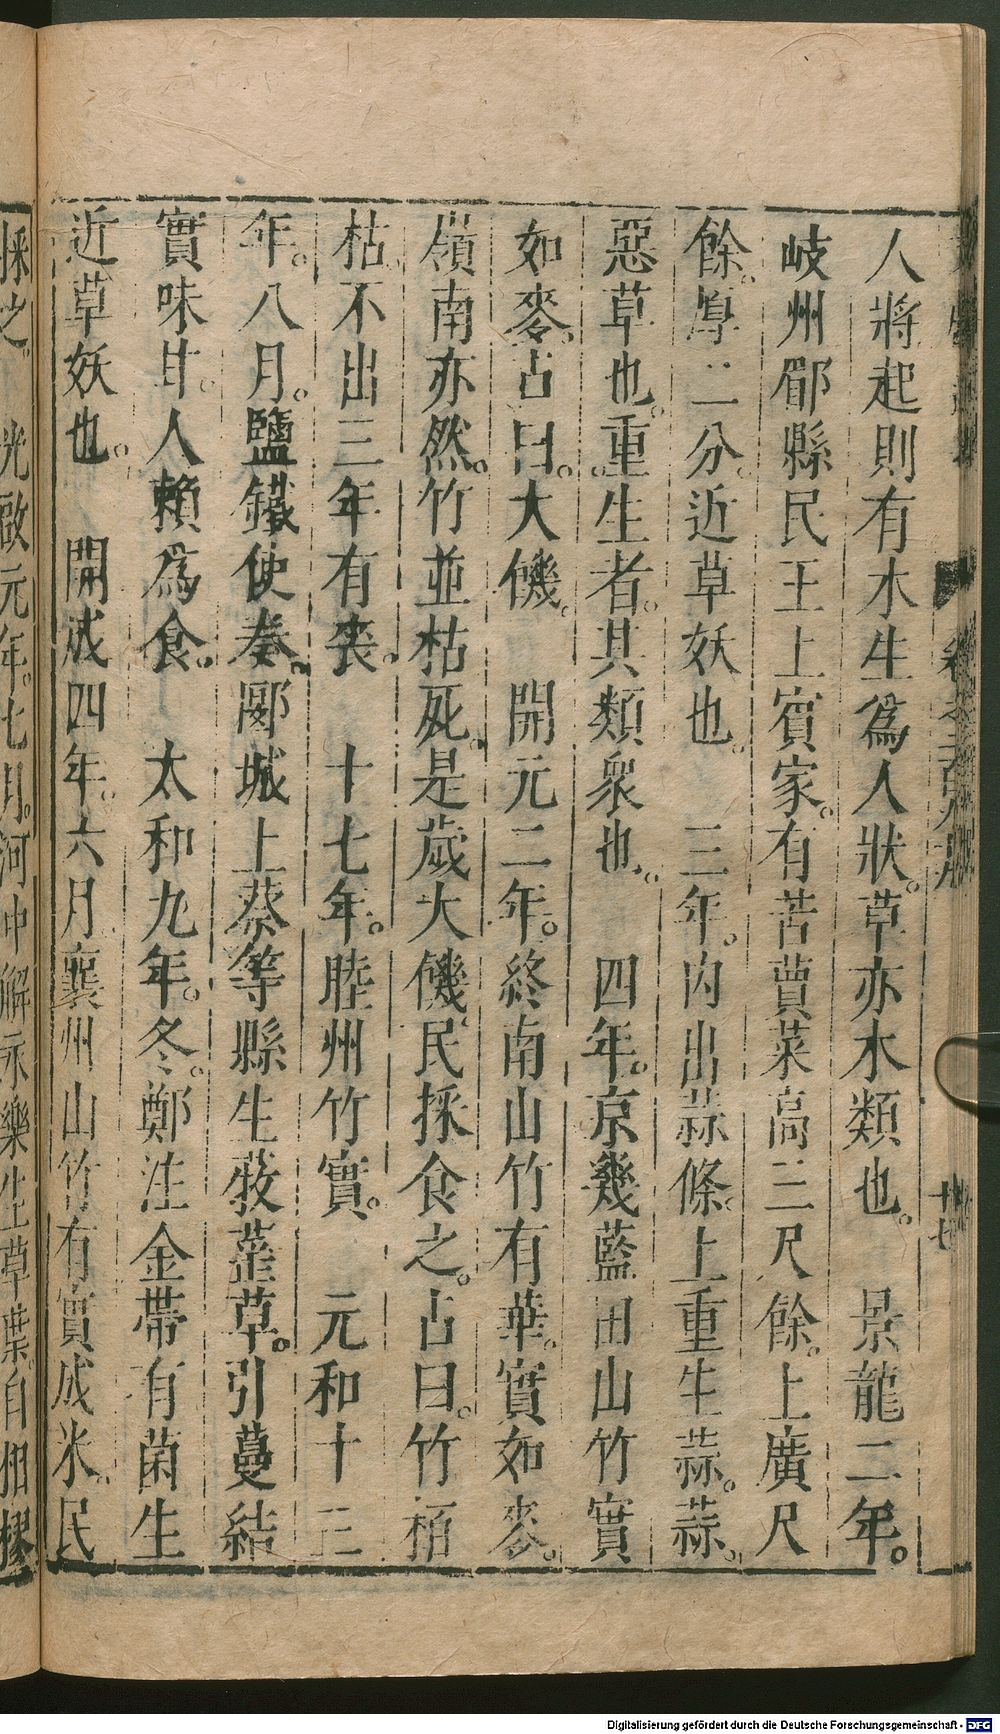 人將起則有木生爲人狀。草亦木類也。　景龍二年。
岐州郿縣民王上賓家。有苦蕒菜高三尺餘。上廣尺
餘。厚二分。近草妖也。　三年。內出蒜條。上重生蒜。蒜。
惡草也。重生者。其類衆也。　四年。京畿藍田山竹實
如麥。占曰。大饑。　開元二年。終南山竹有華。實如麥。
嶺南亦然。竹並枯死。是歲大饑。民採食之。占曰。竹栢
枯。不出三年有喪。　十七年。睦州竹實。　元和十三
年。八月。鹽鐵使奏。郾城上蔡等縣生薂葟草。引蔓結
實味甘。人賴爲食。　太和九年。冬。鄭注金帶有菌生
近草妖也。　開成四年。六月襄州山竹有實成米。民
採之。　光啟元年。七月。河中解永樂生草葉。自相樛
卷之三百八十九
十七
Digitalisierung gefördert durch die Deutsche Forschungsgemeinschaft - DFG